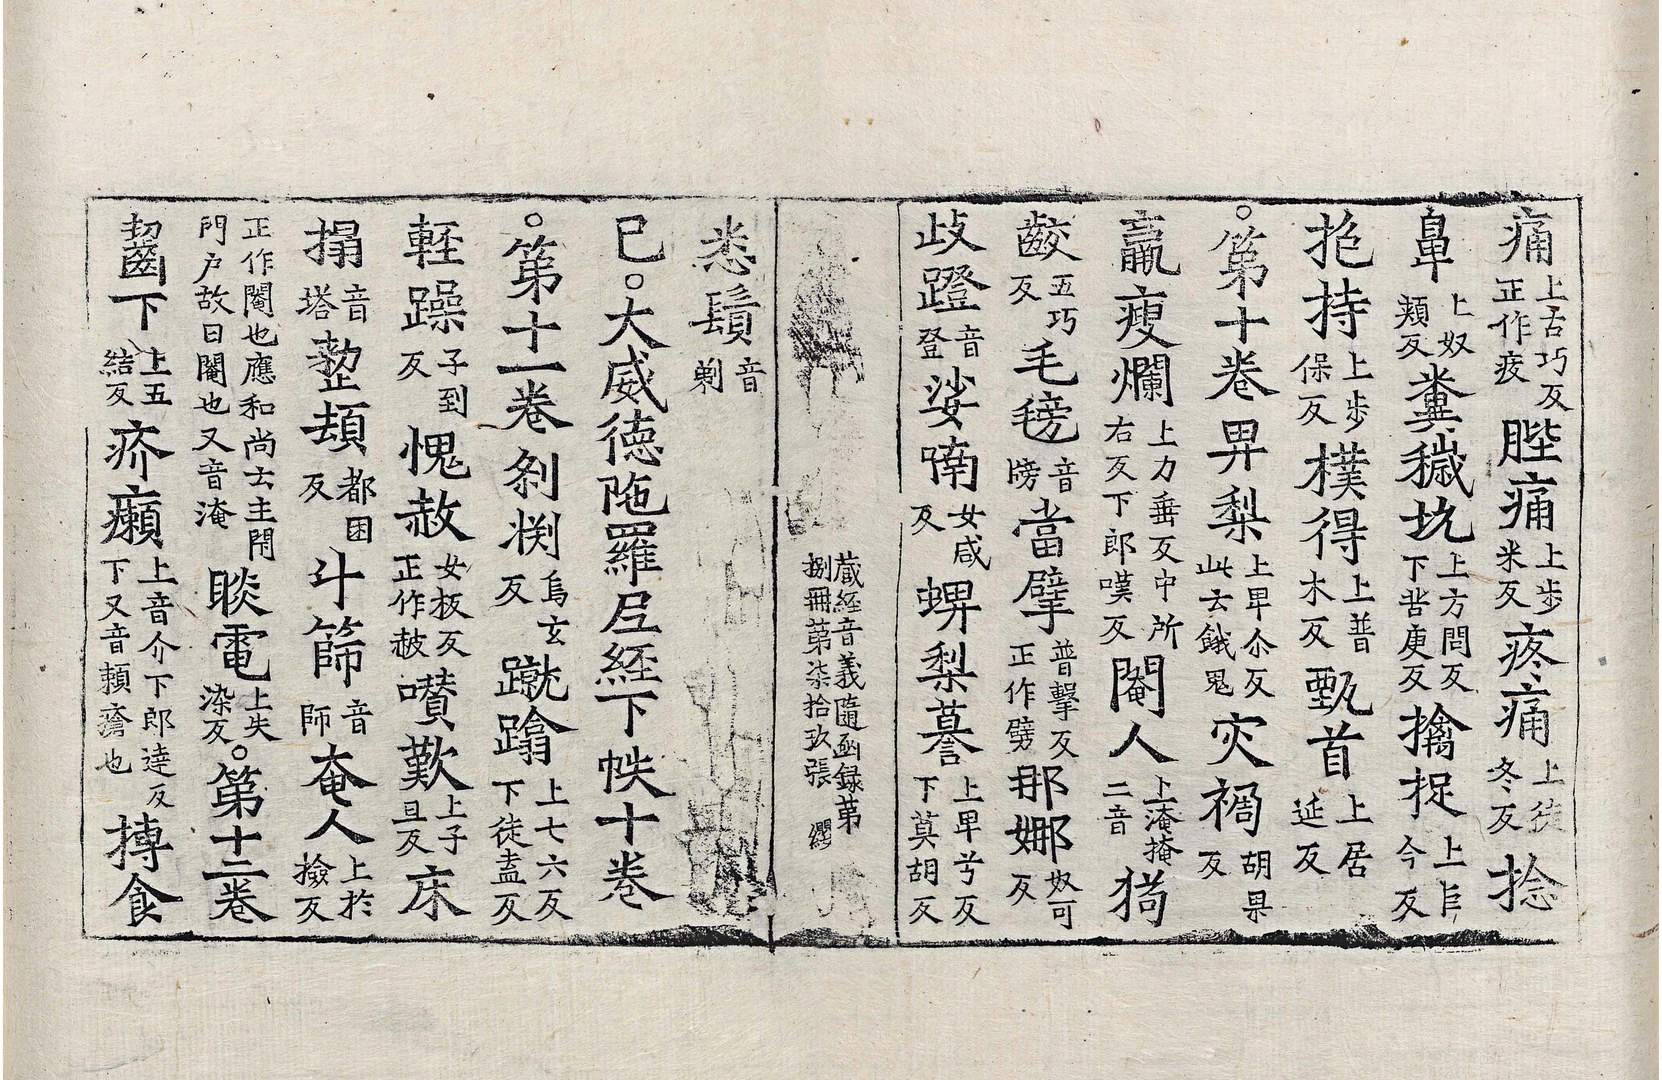 痛上古巧反正作疫䏶痛上步米反疼痛上徒冬反捻
鼻上奴頬反糞穢坑上方問反下苦庚反擒捉上巨今反
抱持上步保反樸得上普木反甄首上居延反
。第十卷畀梨上卑尒反此云餓鬼灾禍胡果反
羸瘦爛上力垂反中所右反下郎嘆反閹人上淹掩二音猗
齩五巧反毛髈音牓當擘普擊反正作劈那娜奴可反
歧蹬音登娑喃女咸反蜱梨蟇上卑兮反下莫胡反
藏經音義隨函録第捌冊第柒拾玖張 繆
悉鬀音剃
已。大威德陁羅尼經下帙十卷
。第十一卷剜㓨烏玄反蹴蹹上七六反下徒盍反
輕躁子到反愧赦女板反正作赧囋歎上子旦反床
搨音塔整頓都困反斗篩音師奄人上於撿反
正作閹也應和尚云主閇門户故曰閹也又音淹睒電上失染反。第十二卷
齧下上五結反疥癩上音介下郎達反下又音賴瘡也摶食